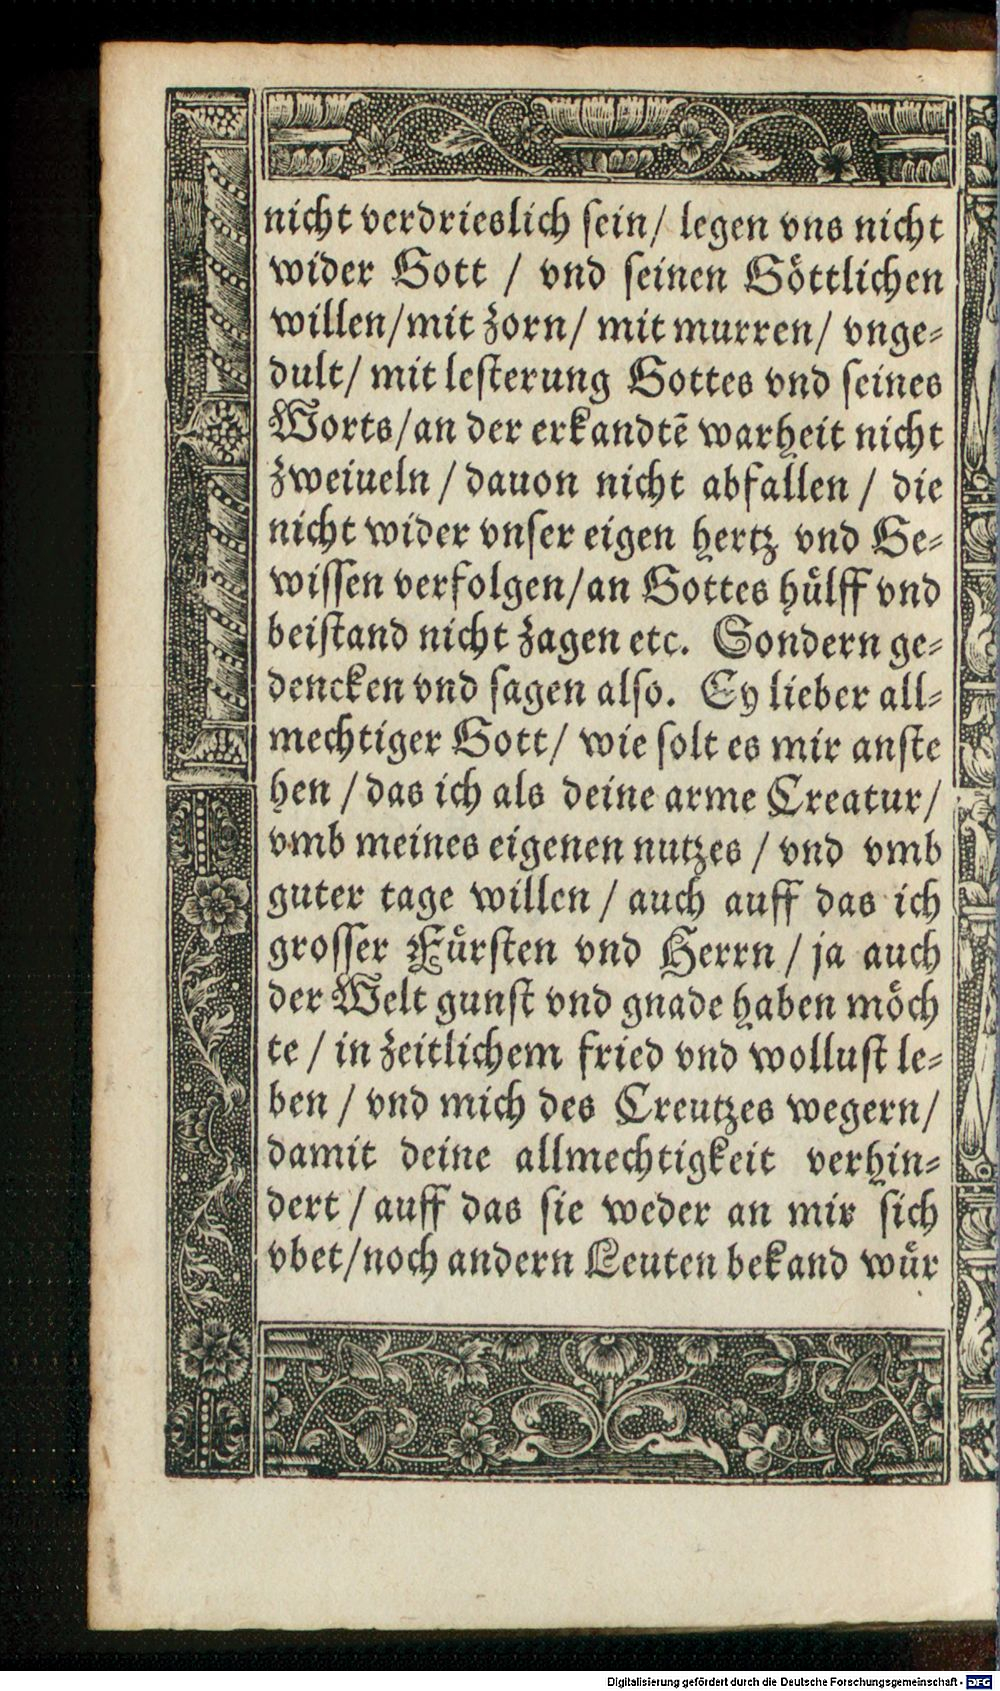 nicht verdrieslich sein/ legen vns nicht
wider Gott / vnd seinen Göttlichen
willen/mit zorn/ mit murren/ vnge=
dult/ mit lesterung Gottes vnd seines
Worts/an der erkandtē warheit nicht
zweiueln / dauon nicht abfallen / die
nicht wider vnser eigen hertz vnd Ge=
wissen verfolgen/an Gottes hülff vnd
beistand nicht zagen etc. Sondern ge=
dencken vnd sagen also. Ey lieber all=
mechtiger Gott/ wie solt es mir anste
hen / das ich als deine arme Creatur/
vmb meines eigenen nutzes / vnd vmb
guter tage willen / auch auff das ich
grosser Fürsten vnd Herrn / ja auch
der Welt gunst vnd gnade haben möch
te / in zeitlichem fried vnd wollust le=
ben / vnd mich des Creutzes wegern/
damit deine allmechtigkeit verhin=
dert / auff das sie weder an mir sich
vbet/noch andern Leuten bekand wür
Digitalisierung gefördert durch die Deutsche Forschungsgemeinschaft - DFG